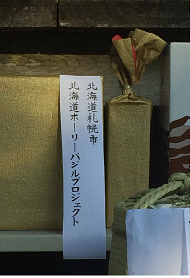 北海道札幌市
北海道ホーリーバジルプロジェクト